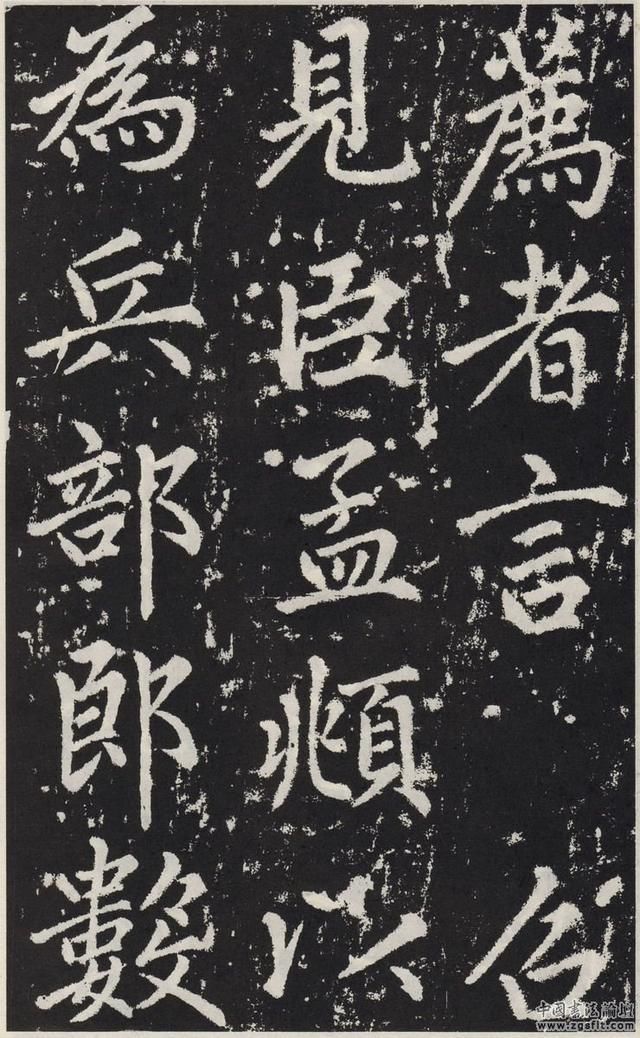 薦者言 召
見臣孟頫以
為兵部郎數
中国书法论坛
www.zgsflt.com